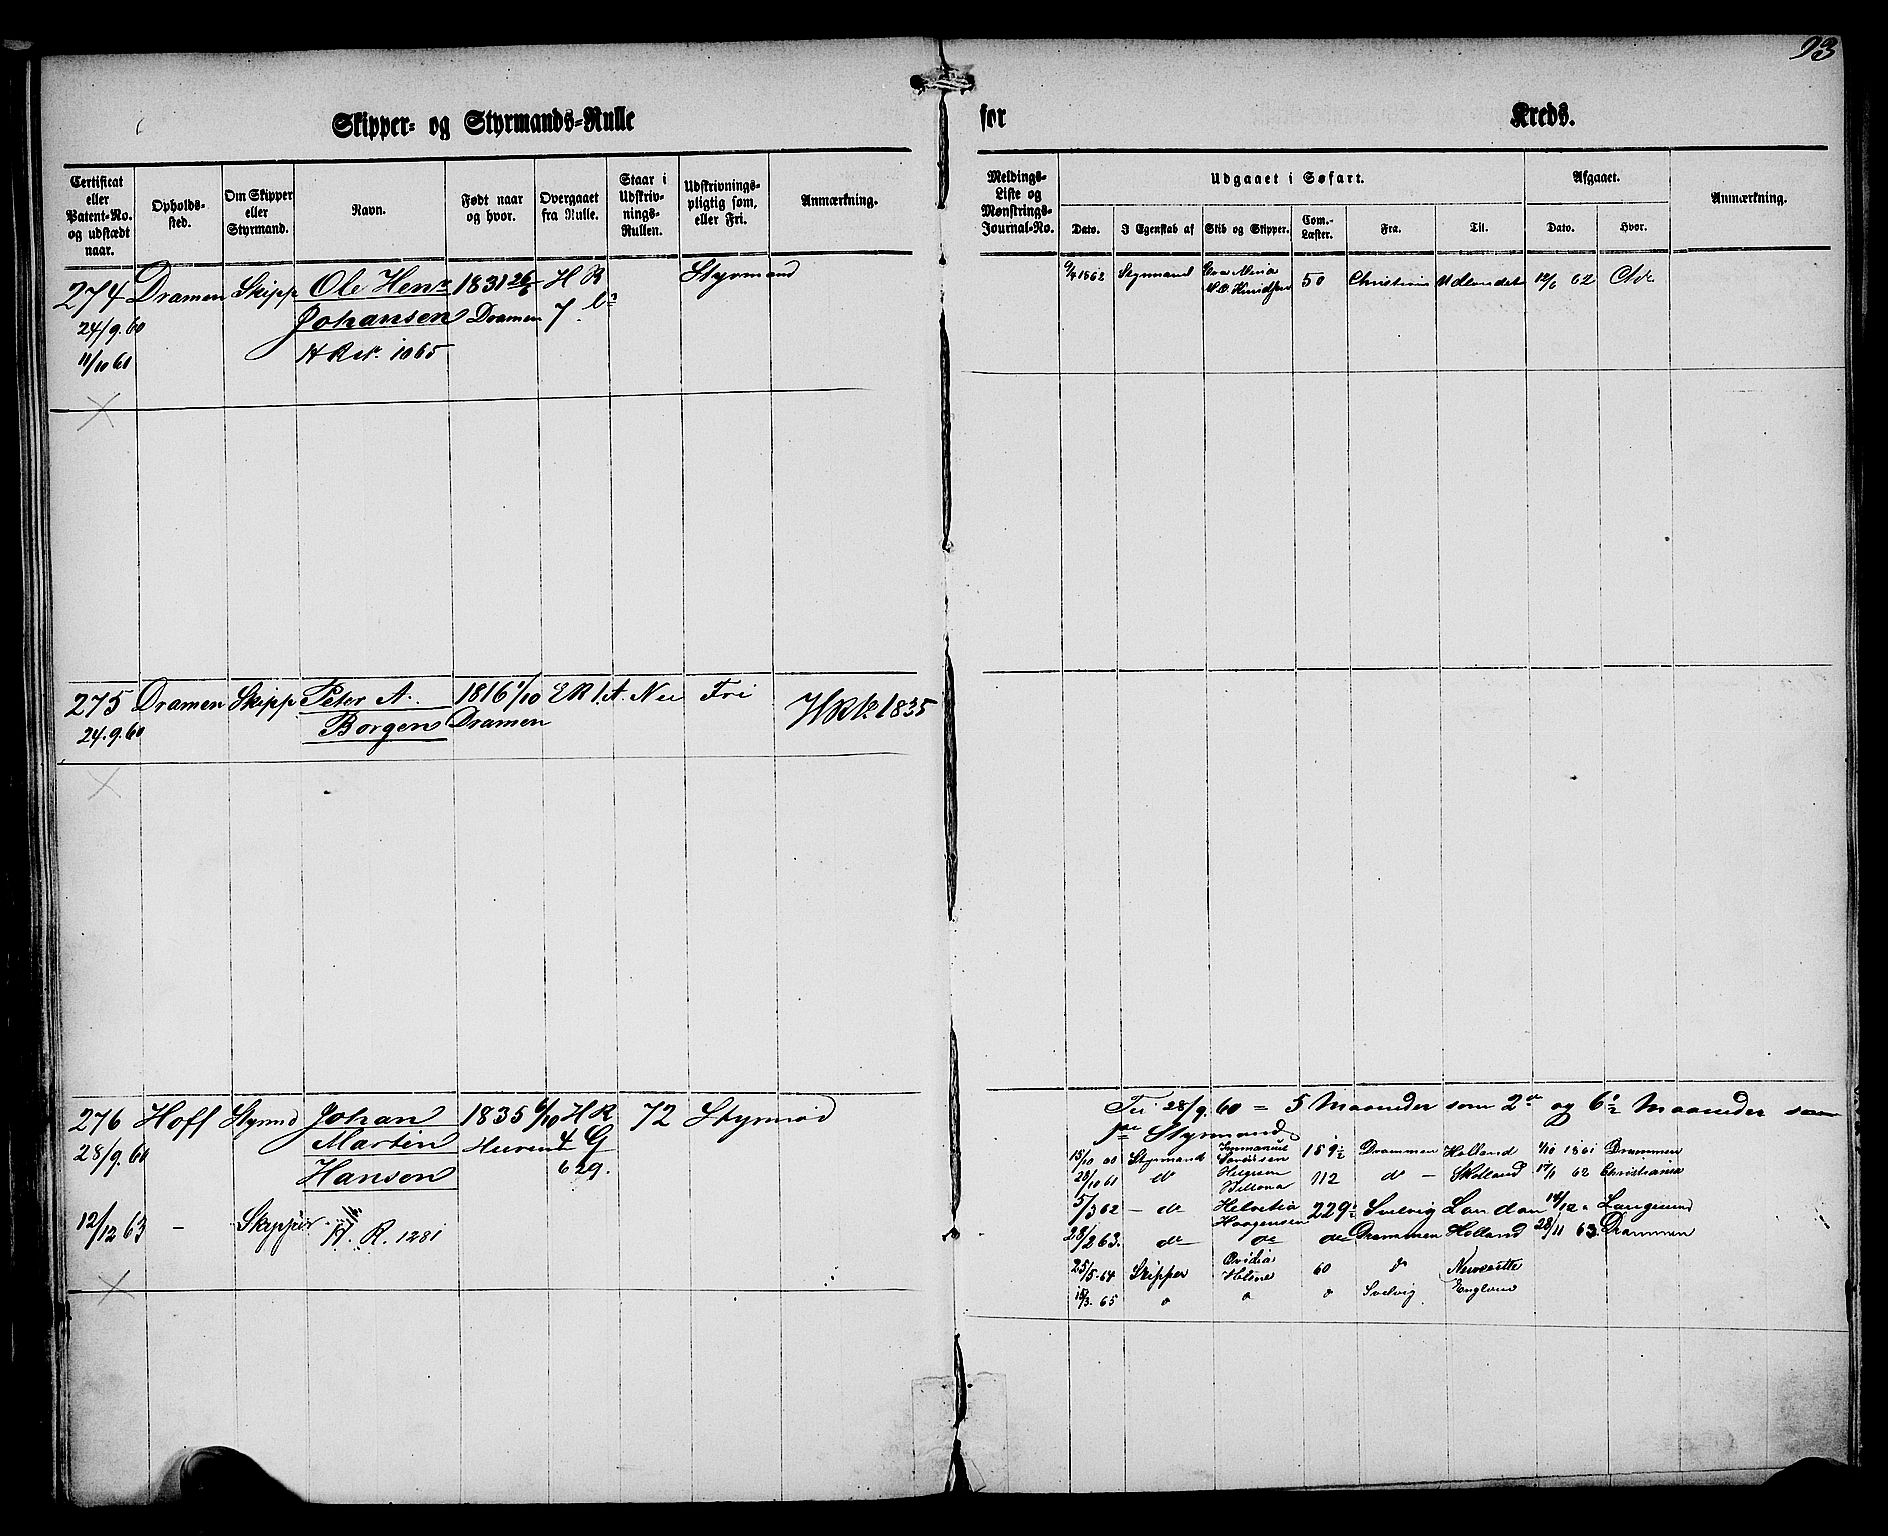 93
Skipper- og Styrmands-Rulle
for
Kreds.
Certificat eller Patent-No. og udstædt naar.
Opholds-sted.
Om Skipper eller Styrmand.
Navn.
Født naar og hvor.
Overgaaet fra Rulle.
Staar i Udskriv-nings-Rullen.
Udskrivnings-pligtig som, eller Fri.
Anmærkning.
Meldings-Liste og Mønstrings-Journal-No.
Udgaaet i Søfart.
Afgaaet.
Anmærkning.
Dato.
I Egenskab af
Skib og Skipper.
Com. Læster.
Fra.
Til.
Dato.
Hvor.
274 Dramen Skipp Ole Hen. 1831 26/6 H R Styrmand
24/9.60 Johansen Dramen 7.
11/10 61 H R 1065
1862 Styrmand 50 Christiania Udlandet 12/6 62 Chr
275 Dramen Skipp Peter A. 1816 1/10 E R 1. A. Nei Fri
24.9.60 Borgens Dramen
1835
276 Hoff Styrmd Johan 1835 6/10 H R 72 Styrmd
28/9.60 Martin Hurum 4 G
Hansen 629.
12/12 63 - Skipper H. R. 1281
Til 28/9.60 = 5 Maaneder som 2d og 6 1/2 Maaneder som
Styrmand
15/10 60 Styrmand Immanuel Sørensen 159 1/2 Drammen Holland 1861 Drammen
20/10 61 do Bellona 112 do - 62 Christiania
5/3 62 - do Helvetia Haagensen 229 1/2 Svelvig London 14/12 - Langesund
28/2 63. do do do Drammen Holland 28/11 63 Drammen
25/5.64 Skipper Ovidia Helene 60 do Newcastle
65 Svelvig England